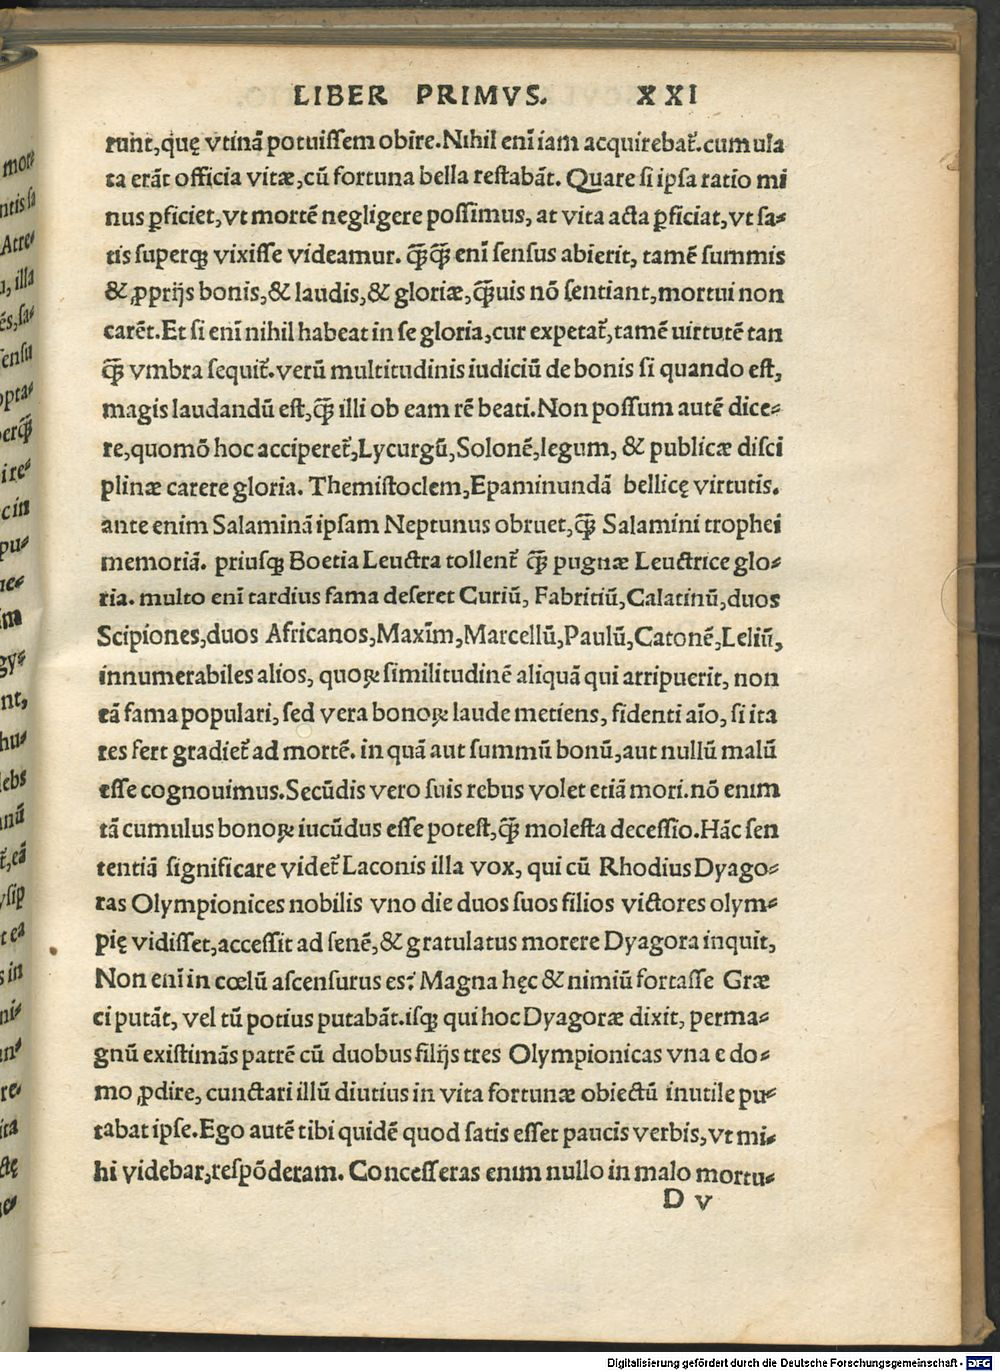 LIBER PRIMVS. XXI
runt,quę vtinã potuiſſem obire.Nihil enĩ iam acquirebat᷑.cumula
ta erãt officia vitæ,cũ fortuna bella reſtabãt. Quare ſi ipſa ratio mi
nus ꝑficiet,vt mortẽ negligere poſſimus, at vita acta ꝑficiat,vt ſa-
tis ſuperqꝫ vixiſſe videamur. q̃q̃ enĩ ſenſus abierit, tamẽ ſummis
& ꝓprijs bonis,& laudis,& gloriæ,q̃uis nõ ſentiant,mortui non
carẽt.Et ſi enĩ nihil habeat in ſe gloria,cur expetat᷑,tamẽ uirtutẽ tan
q̃ vmbra ſequit᷑.verũ multitudinis iudiciũ de bonis ſi quando eſt,
magis laudandũ eſt,q̃ illi ob eam rẽ beati.Non poſſum autẽ dice-
re,quomõ hoc acciperet᷑,Lycurgũ,Solonẽ,legum, & publicæ diſci
plinæ carere gloria. Themiſtoclem,Epaminundã bellicę virtutis.
ante enim Salaminã ipſam Neptunus obruet,q̃ Salamini trophei
memoriã. priuſqꝫ Boetia Leuctra tollent᷑ q̃ pugnæ Leuctrice glo-
ria. multo enĩ tardius fama deſeret Curiũ, Fabritiũ,Calatinũ,duos
Scipiones,duos Africanos,Maxĩm,Marcellũ,Paulũ,Catonẽ,Leliũ,
innumerabiles alios, quoꝝ ſimilitudinẽ aliquã qui arripuerit, non
tã fama populari, ſed vera bonoꝝ laude metiens, fidenti aĩo, ſi ita
res fert gradiet᷑ ad mortẽ. in quã aut ſummũ bonũ,aut nullũ malũ
eſſe cognouimus.Secũdis vero ſuis rebus volet etiã mori.nõ enim
tã cumulus bonoꝝ iucũdus eſſe poteſt,q̃ moleſta deceſſio.Hãc ſen
tentiã ſignificare videt᷑ Laconis illa vox, qui cũ Rhodius Dyago-
ras Olympionices nobilis vno die duos ſuos filios victores olym-
pię vidiſſet,acceſſit ad ſenẽ,& gratulatus morere Dyagora inquit,
Non enĩ in cœlũ aſcenſurus es? Magna hęc & nimiũ fortaſſe Græ
ci putãt, vel tũ potius putabãt.iſqꝫ qui hoc Dyagoræ dixit, perma-
gnũ exiſtimãs patrẽ cũ duobus filijs tres Olympionicas vna e do-
mo ꝓdire, cunctari illũ diutius in vita fortunæ obiectũ inutile pu-
tabat ipſe.Ego autẽ tibi quidẽ quod ſatis eſſet paucis verbis,vt mi-
hi videbar,reſpõderam. Conceſſeras enim nullo in malo mortu-
D v
Digitalisierung gefördert durch die Deutsche Forschungsgemeinschaft - DFG